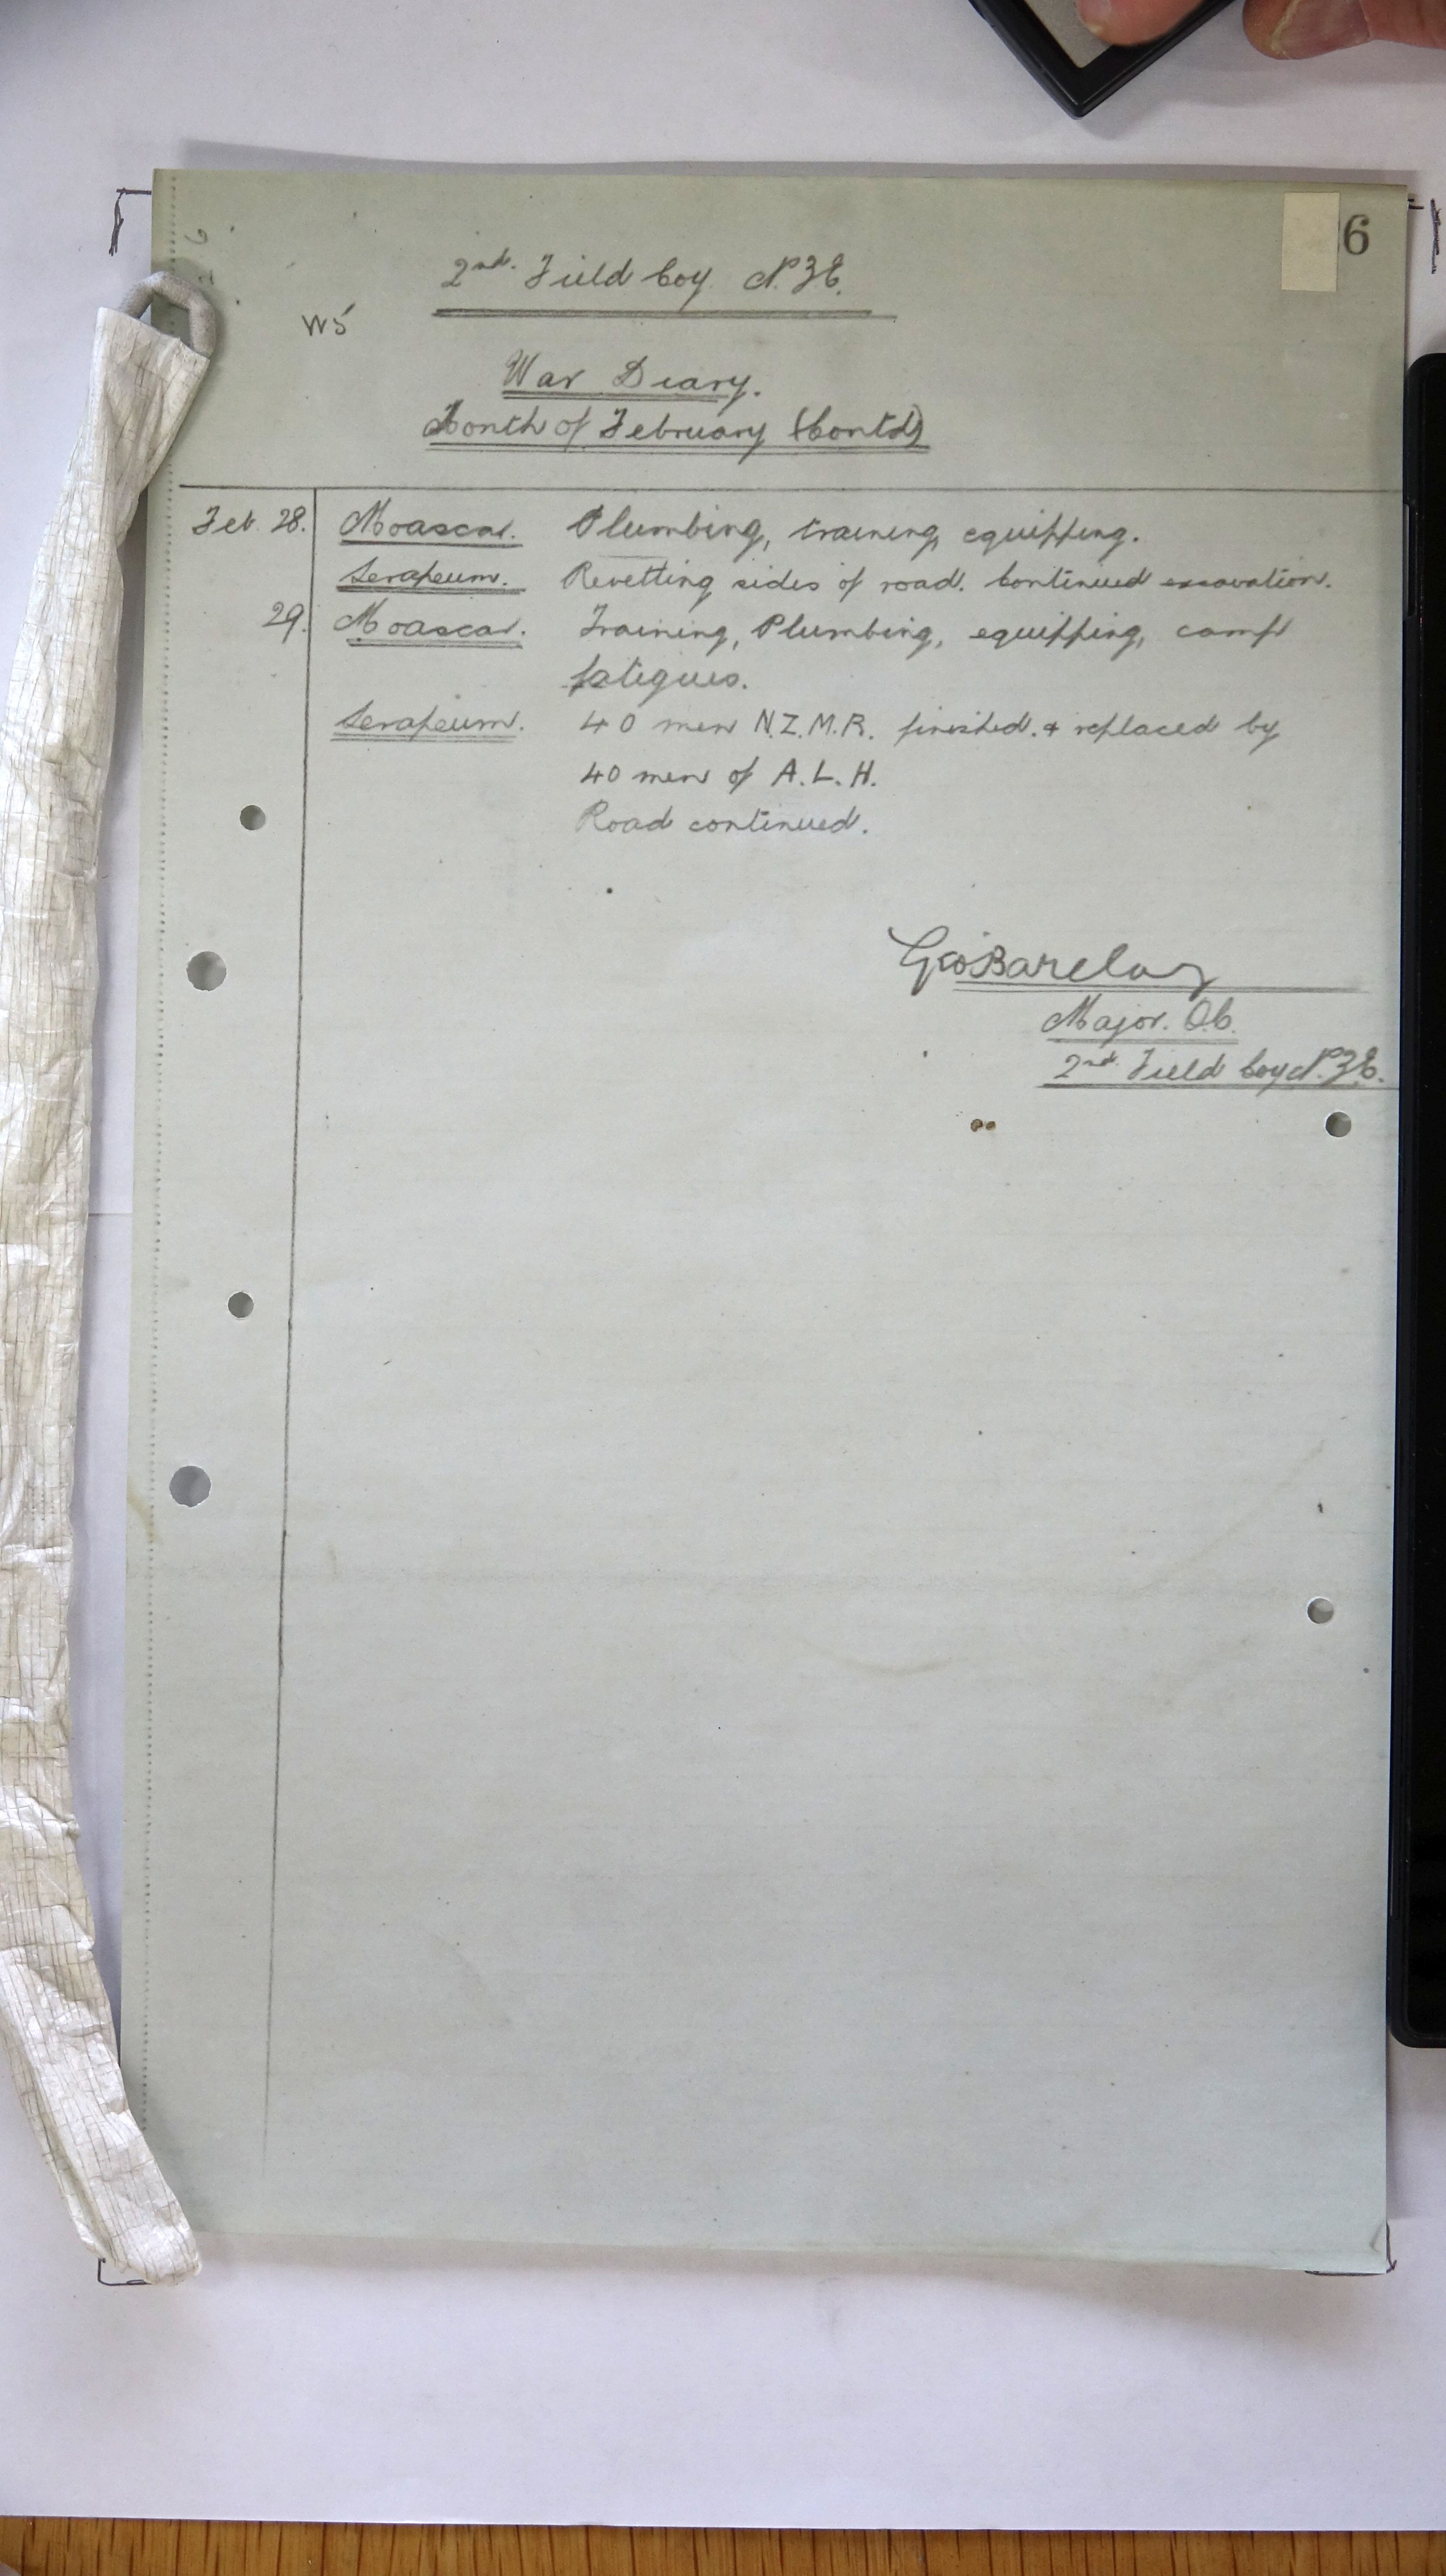 6
2nd. Field Coy. N.Z.E.
W5
War Diary.
Month of February (Contd)
Feb. 28. Moascar. Plumbing, training, equipping.
Serapeum. Revetting sides of road. Continued excavation.
29. Moascar. Training, Plumbing, equipping, camp
fatigues.
Serapeum. 40 men N.Z.M.R. finished. & replaced by
40 men of A.L.H.
Road continued.
Geo Barclay
Major. O.C.
2nd. Field Coy N.Z.E.